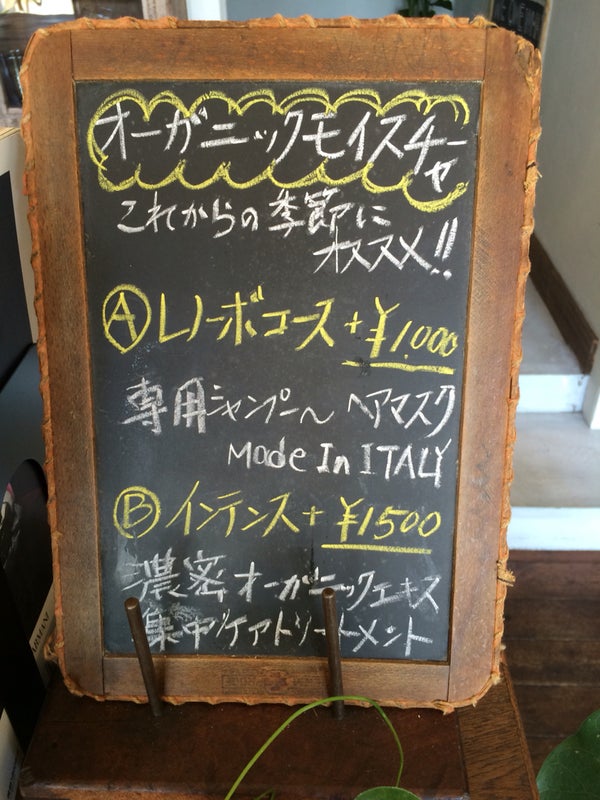 オーガニックモイスチャー
これからの季節に
オススメ!!
Ⓐレノーボコース+¥1,000
専用シャンプー〜ヘアマスク
Made In ITALY
Ⓑインテンス+¥1500
濃密オーガニックエキス
集中ケアトリートメント